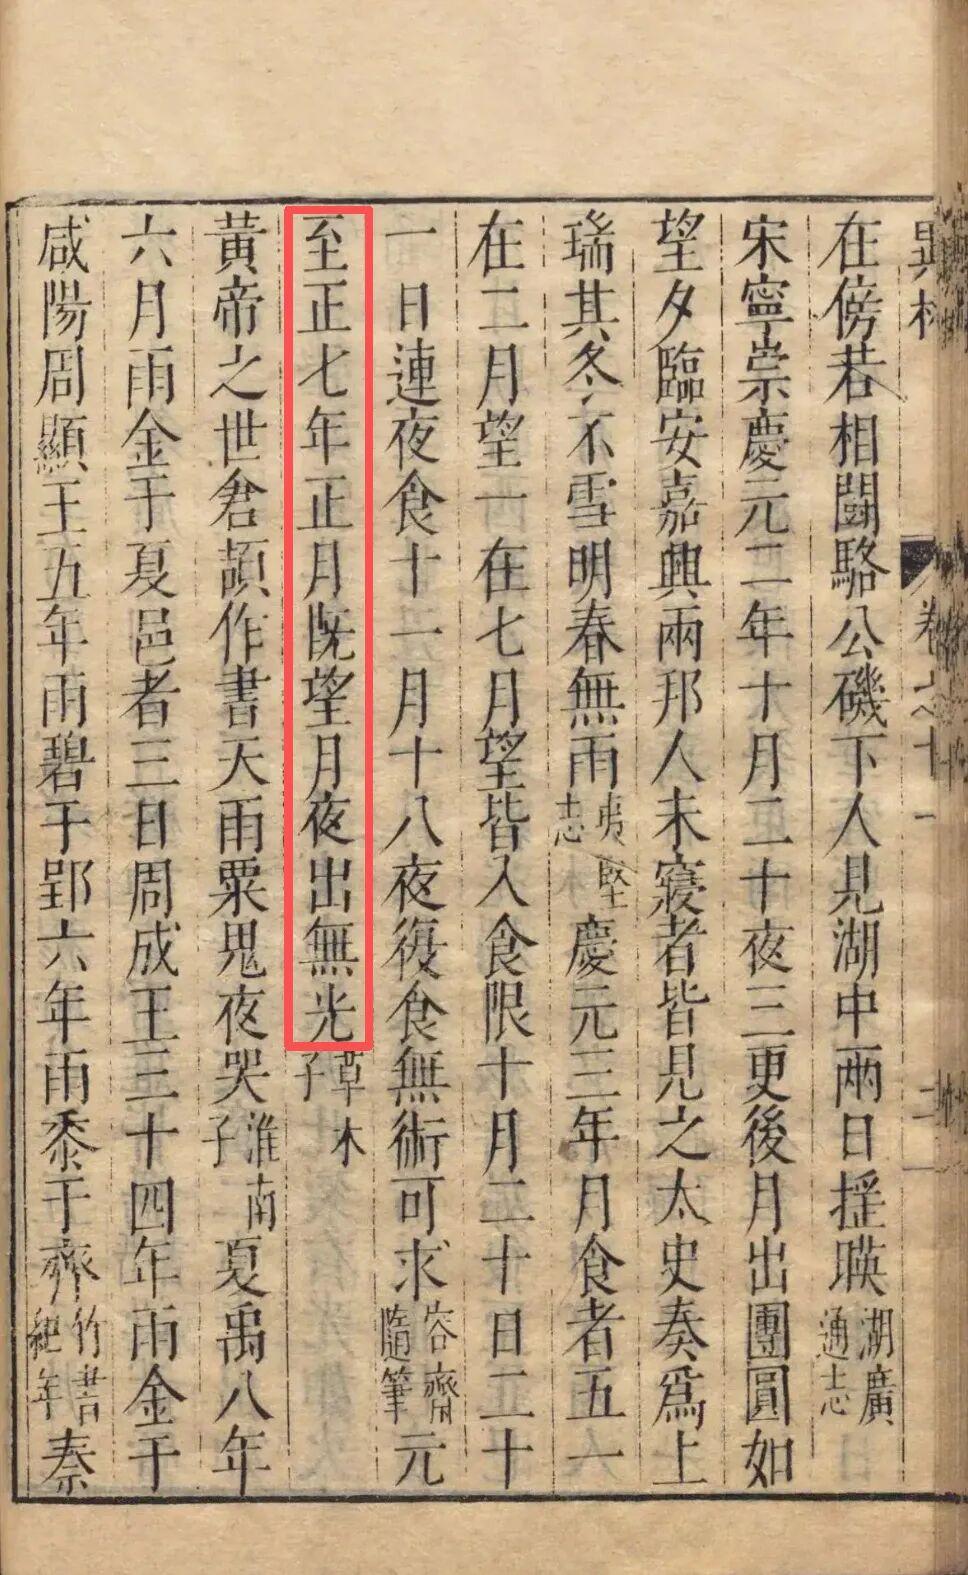 在傍若相鬪駱公磯下人見湖中兩日揺暎湖廣通志
宋寧宗慶元二年十月二十夜三更後月出團圓如
望夕臨安嘉興兩邦人未寢者皆見之太史奏爲上
瑞其冬不雪明春無雨夷堅志慶元三年月食者五一
在二月望一在七月望皆入食限十月二十日二十
一日連夜食十一月十八夜復食無術可求容齋隨筆元
至正七年正月旣望月夜出無光草木子
黃帝之世君頡作書天雨粟鬼夜哭淮南子夏禹八年
六月雨金于夏邑者三日周成王三十四年雨金于
咸陽周顯王五年雨碧于郢六年雨黍于齊竹書紀年秦